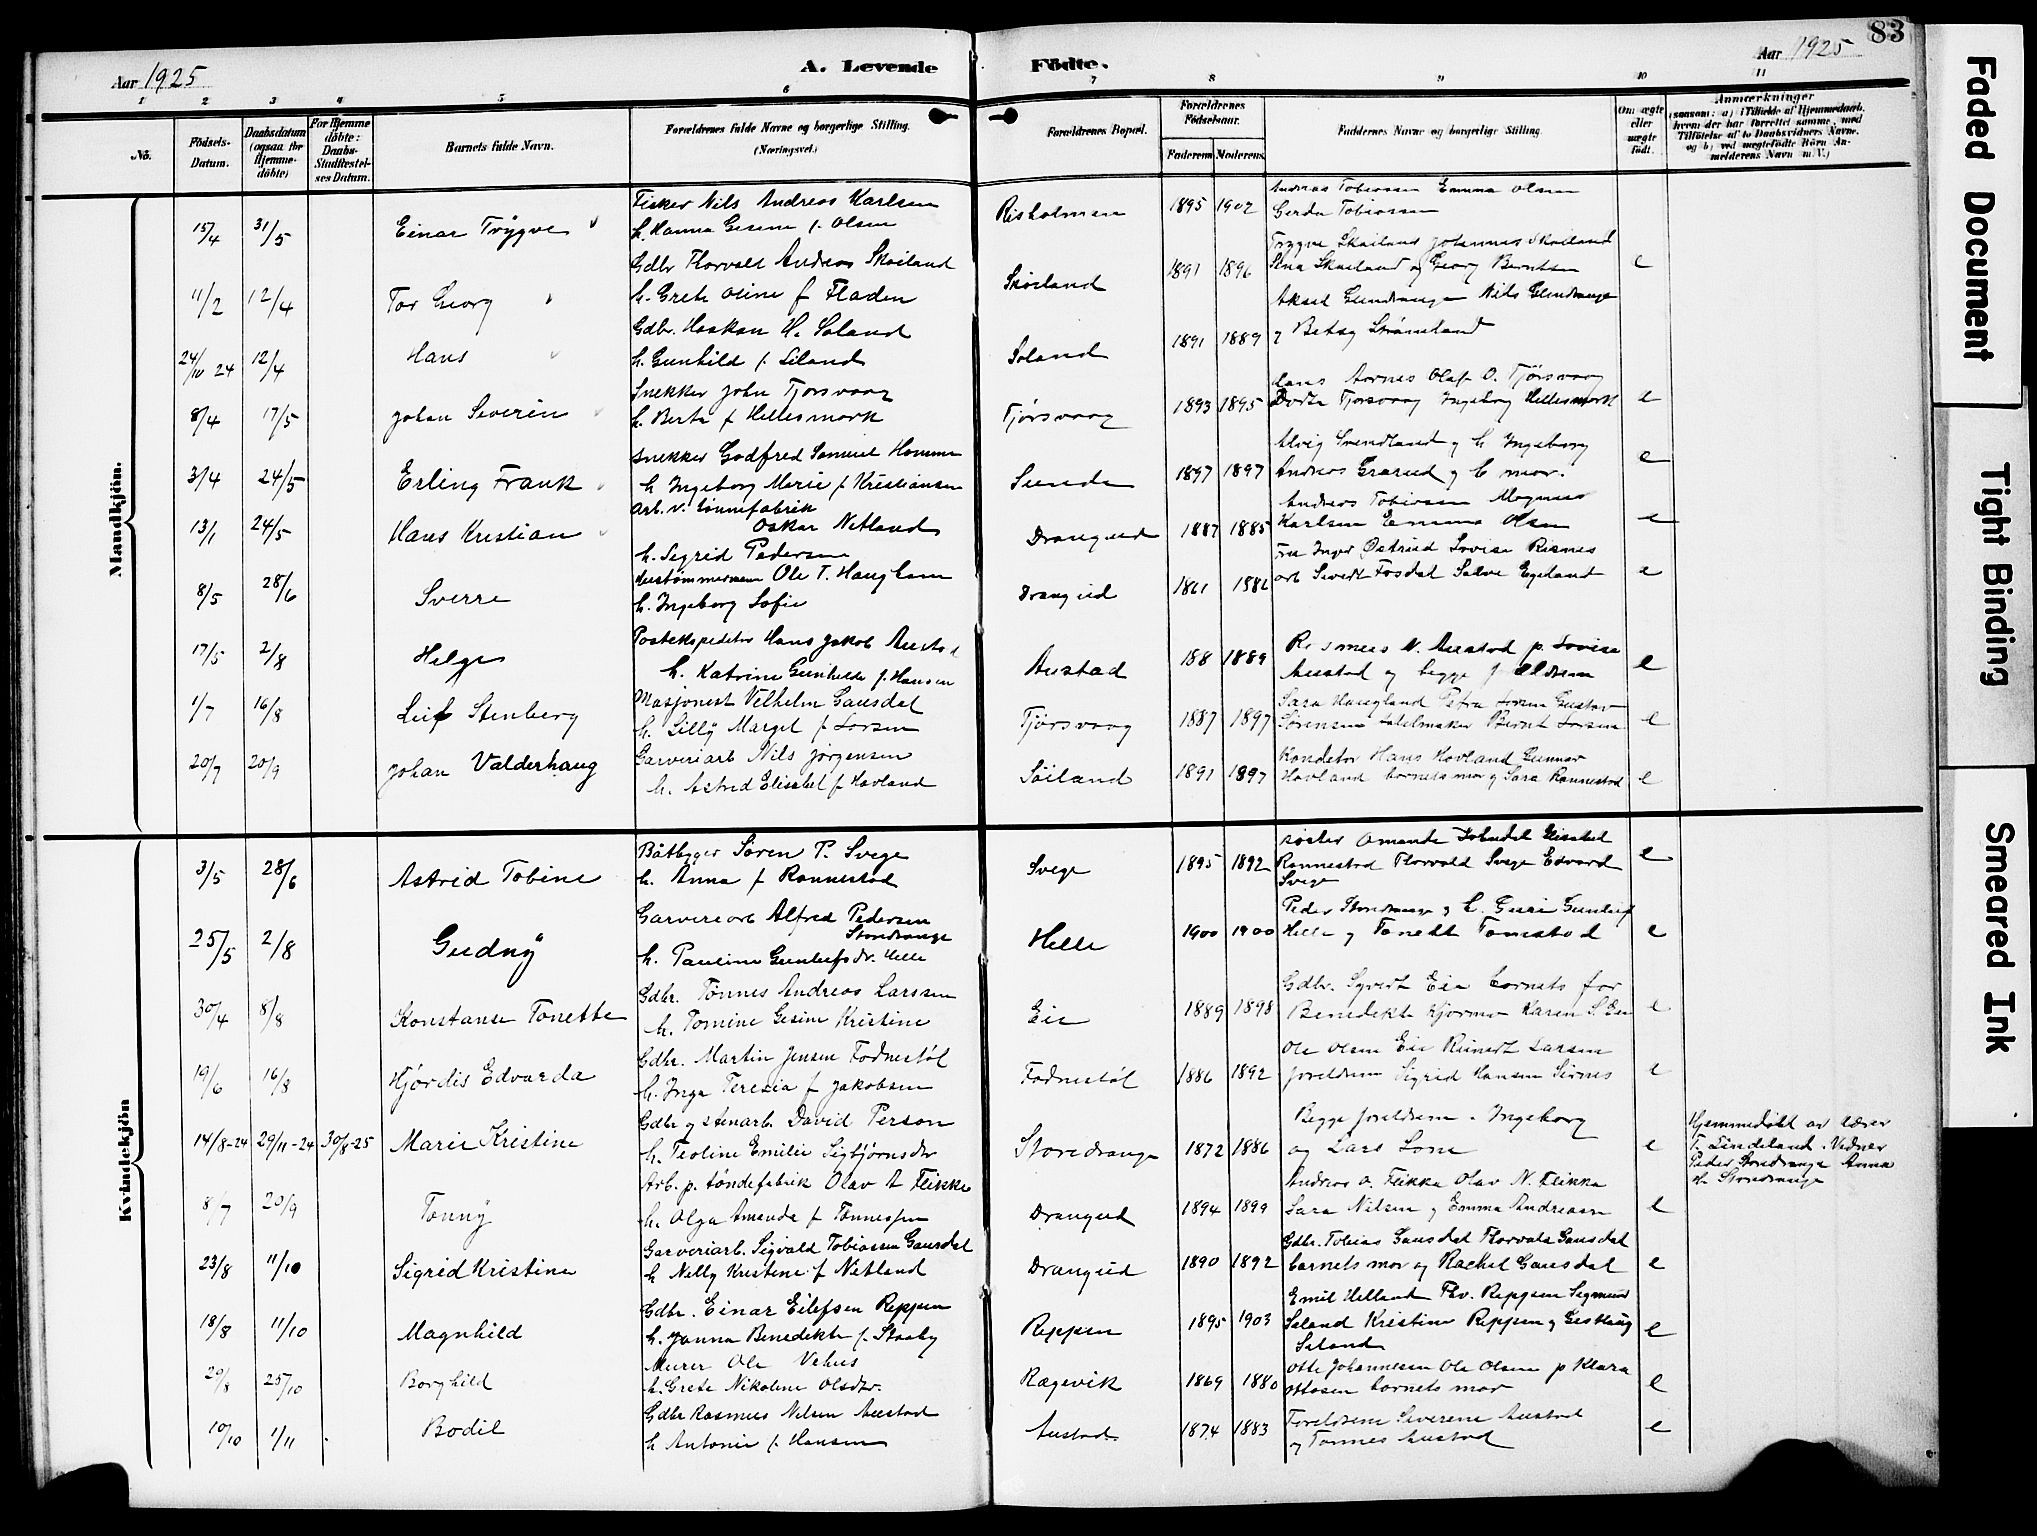 83
Aar 1925
A. Levende
Födte.
Aar 1925
1 2 3 4 5 6 7 8 9 10 11
No.
Födsels-Datum.
Daabsdatum (ogsaa for Hjemme-döbte)
For Hjemme döbte: Daabs-Stadfæstel-ses Datum.
Barnets fulde Navn.
Forældrenes fulde Navne og borgerlige Stilling. (Næringsvei.)
Forældrenes Bopæl.
Forældrenes Födselsaar.
Faderens Moderens
Faddernes Navne og borgerlig Stilling.
Om ægte eller uægte födt.
Anmærkninger
Mandkjön.
15/4 31/5 Einar Trygve
Fisker Nils Andreas Karlsen
h. Hanna Gesine f. Olsen
Risholmen 1895 1902
Andreas Tobiassen Emma Olsen
Gerda Tobiassen
11/2 12/4 Tor Georg
Gdbr Thorvald Andreas Skoiland
h. Grete Oline f Fladen
Skoiland 1891 1896
Trygve Skoiland Johannes Skoiland
Skoiland og Georg Berntsen e
24/10 24 12/4 Hans
Gdbr. Haakon H. Soland
h. Gunhild f. Eiland
Soland 1891 1889
Aksel Nils
og Betsy Strømland
8/4 17/5 Johan Severin
Snekker John Tjorsvaag
h. Berta f Hellesmork
Tjørsvaag 1893 1895
Aarnes Olaf O. Tjørsvaag
Dorte Tjorsvaag Ingeborg Hellesmork e
3/4 24/5 Erling Frank
Snekker Godfred Samuel Homme
h Ingeborg Marie f Kristiansen
Sunde 1897 1897
Alvig Svendland og h Ingeborg
Andreas Grarud og b mor. e
13/1 24/5 Hans Kristian
Arb. v. tønnefabrik
Oskar Netland
h. Sigrid Pedersen
Drangeid 1887 1885
Andreas Tobiassen Magnus
Karlsen Emma Olsen e
8/5 28/6 Sverre
Hustømmermann Ole T. Haugham
h. Ingeborg Sofie
Drangeid 1861 1886
Fru Inger Østrud Lovise Risnes
arb Sivert Fosdal Salve Egeland e
17/5 2/8 Helge
Postekspeditør Hans Jakob Austad
h. Katrine Gunhilde f. Hansen
Austad 188 1889
Rasmus N. Austad p. Lovise
Austad og begge foreldrene e
1/7 16/8 Leif Stenberg
Masjonest Velhelm Gausdal
h. Lilly Marget f Larsen
Tjørsvaag 1887 1897
Sara Haugland Petra Larsen Gustav
Sørensen salelmaker Bernt Larsen e
20/7 20/9 Johan Valderhaug
Garveriarb Nils Jørgensen
h. Astrid Elisabet f Hovland
Søiland 1891 1897
Konditor Hans Hovland Gunnar
Hovland barnets mor og Sara Rannestad e
Kvindekjön
3/5 28/6 Astrid Tobine
Båtbygger Søren P. Svege
h. Anna f Rannestad
Svege 1895 1892
søster Amanda Elisabet
Rannestad Thorvald Svege Edvard
Svege e
25/5 2/8 Gudny
Garveriarb Alfred Pedersen
Stordrange
h. Pauline Gunleifsdr. Helle
Helle 1900 1900
Peder Stordrange og h. Guri Gunleif
Helle og Tonette Tomstad e
30/4 8/8 Konstanse Tonette
Gdbr. Tönnes Andreas Larssen
h. Tomine Gesine Kristine
Eie 1889 1898
Gdbr. Syvert Eie barnets far
Benedikte Karen S. Eie e
19/6 16/8 Hjørdis Edvarda
Gdbr. Martin Jensen Fodnestøl
h. Inga Teresia f Jakobsen
Fodnestøl 1886 1892
Ole Olsen Eie Reinert Larsen
foreldrene Sigrid Hansen Sirnes e
14/8-24 29/11-24 30/8-25 Marie Kristine
Gdbr og stenarb. David Person
h. Teoline Emilie Sigbjørnsdr
Storedrange 1872 1886
Begge foreldrene. Ingeborg
og Lars Lone e
Hjemmedøbt av lærer
T. Lindeland. Vidner
Peder Stordrange Anna
Stordrange
8/7 20/9 Tonny
Arb. p. tøndefabrik Olav A Fleikke
h. Olga Amanda f Tønnessen
Drangeid 1894 1899
Andreas O. Flikka Olav N. Flikka
Sara Nilsen og Emma Andreasen e
23/8 11/10 Sigrid Kristine
Garveriarb. Sigvald Tobiassen Gausdal
h Nelly Kristine f Netland
Drangeid 1890 1892
Gdbr. Tobias Gausdal Thorvald Gausdal
barnets mor og Rachel Gausdal e
18/8 11/10 Magnhild
Gdbr. Einar Eilefsen Reppen
h. Janna Benedikte f. Staaby
Reppen 1895 1903
Emil Helland Thv. Reppen Sigmund
Seland Kristine Reppen og
Seland e
29/8 25/10 Borghild
Murer Ole Vehus
h. Grete Nikoline Olsdtr.
Rægevik 1869 1880
Otto Johannesen Ole Olsen p Klara
Ottosen barnets mor e
10/10 1/11 Bodil
Gdbr Rasmus Nilsen Austad
h Antonie f. Hansen
Austad 1874 1883
Foreldrene Severine Austad
og Tønnes Austad e
Faded Document
Tight Binding
Smeared Ink